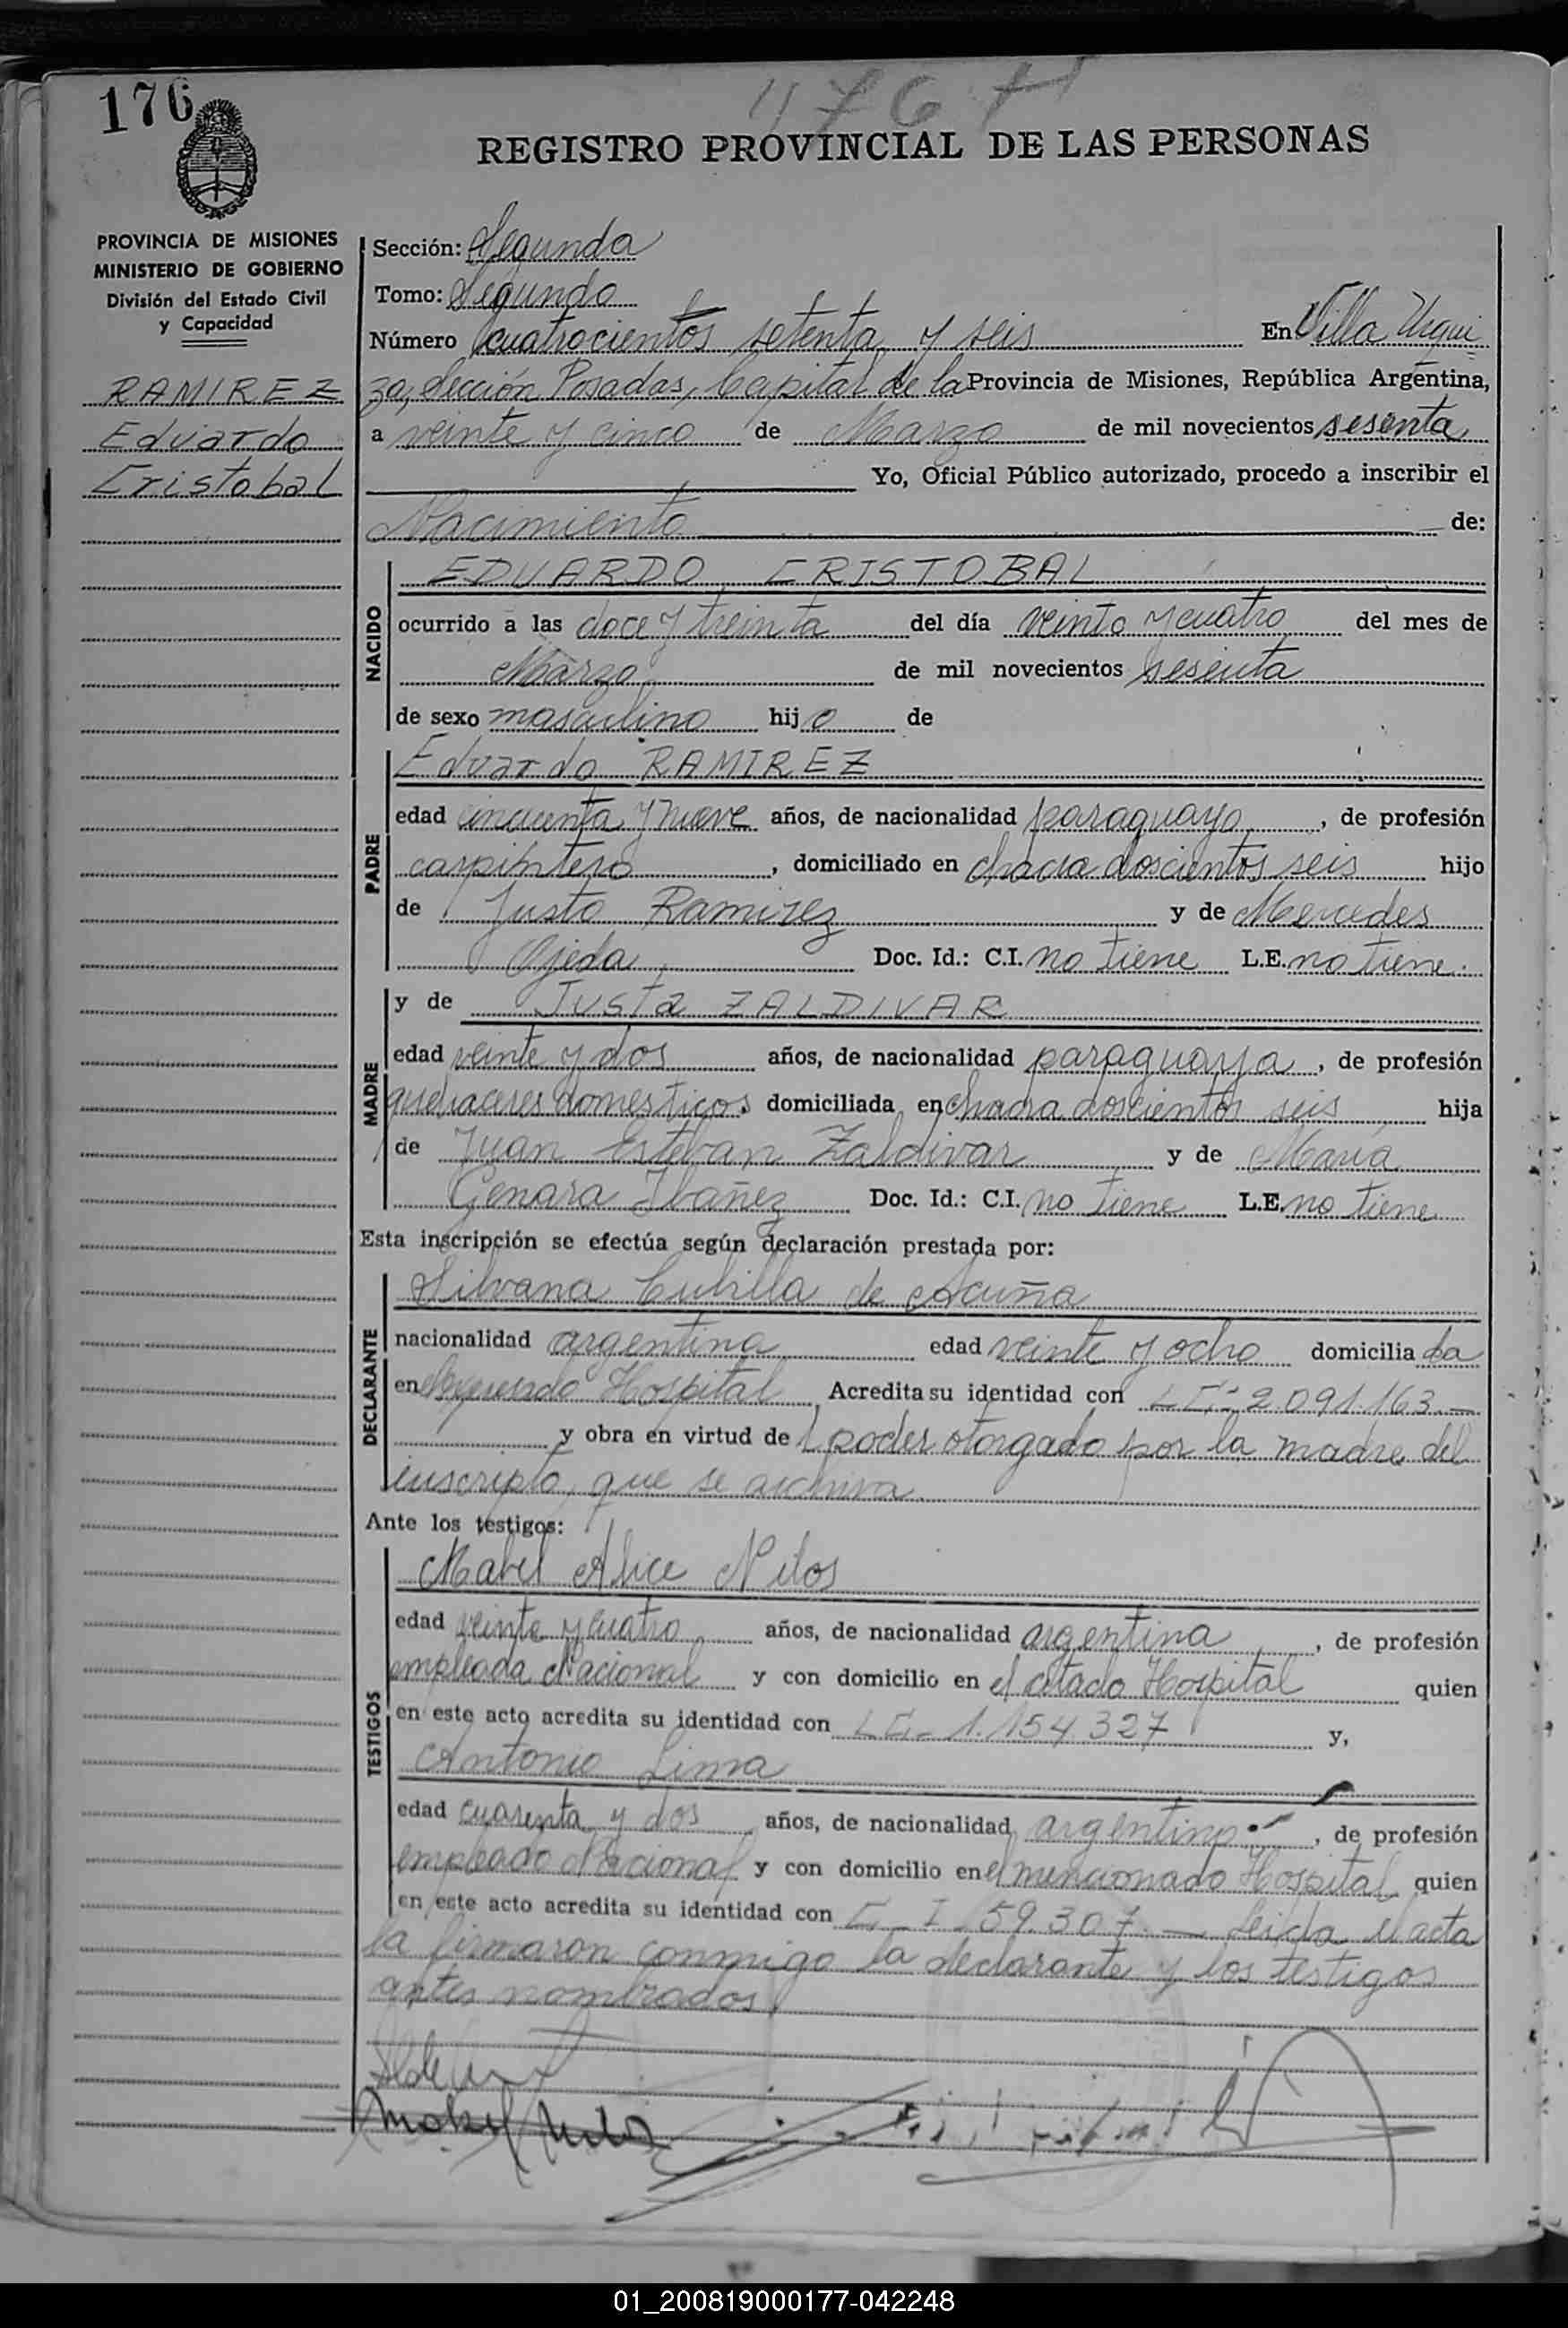 176
476
REGISTRO PROVINCIAL DE LAS PERSONAS
PROVINCIA DE MISIONES
MINISTERIO DE GOBIERNO
División del Estado Civil
y Capacidad
RAMIREZ
Eduardo
Cristobal
Sección: Segunda
Tomo: Segundo
Número cuatrocientos setenta y seis En Villa Urqui
za, Sección Posadas, Capital de la Provincia de Misiones, República Argentina,
a veinte y cinco de Marzo de mil novecientos sesenta
Yo, Oficial Público autorizado, procedo a inscribir el
Nacimiento de:
NACIDO
EDUARDO CRISTOBAL
ocurrido a las doce y treinta del día veinte y cuatro del mes de
Marzo de mil novecientos sesenta
de sexo masculino hijo de
PADRE
Eduardo RAMIREZ
edad cincuenta y nueve años, de nacionalidad paraguayo, de profesión
carpintero, domiciliado en chacra doscientos seis hijo
de Justo Ramirez y de Mercedes
Ojeda, Doc. Id.: C.I. no tiene L.E. no tiene.
MADRE
y de Justa ZALDIVAR
edad veinte y dos años, de nacionalidad paraguaya, de profesión
quehaceres domesticos, domiciliada en chacra doscientos seis hija
de Juan Esteban Zaldivar y de María
Genara Ibañez Doc. Id.: C.I. no tiene L.E. no tiene
Esta inscripción se efectúa según declaración prestada por:
DECLARANTE
Silvana Cubilla de Acuña
nacionalidad argentina edad veinte y ocho domiciliada
en Hospital Acredita su identidad con L C- 2.091.163.-
y obra en virtud de poder otorgado por la madre del
inscripto, que se archiva.
Ante los testigos:
TESTIGOS
Mabel Alice Nilos
edad veinte y cuatro años, de nacionalidad argentina, de profesión
empleada Nacional y con domicilio en el citado Hospital quien
en este acto acredita su identidad con L C- 1.154.327 y,
Antonio Lima
edad cuarenta y dos años, de nacionalidad argentino, de profesión
empleado Nacional y con domicilio en el mencionado Hospital quien
en este acto acredita su identidad con C-I 59.307.- Leida el acta
la firmaron conmigo la declarante y los testigos
antes nombrados
01_200819000177-042248